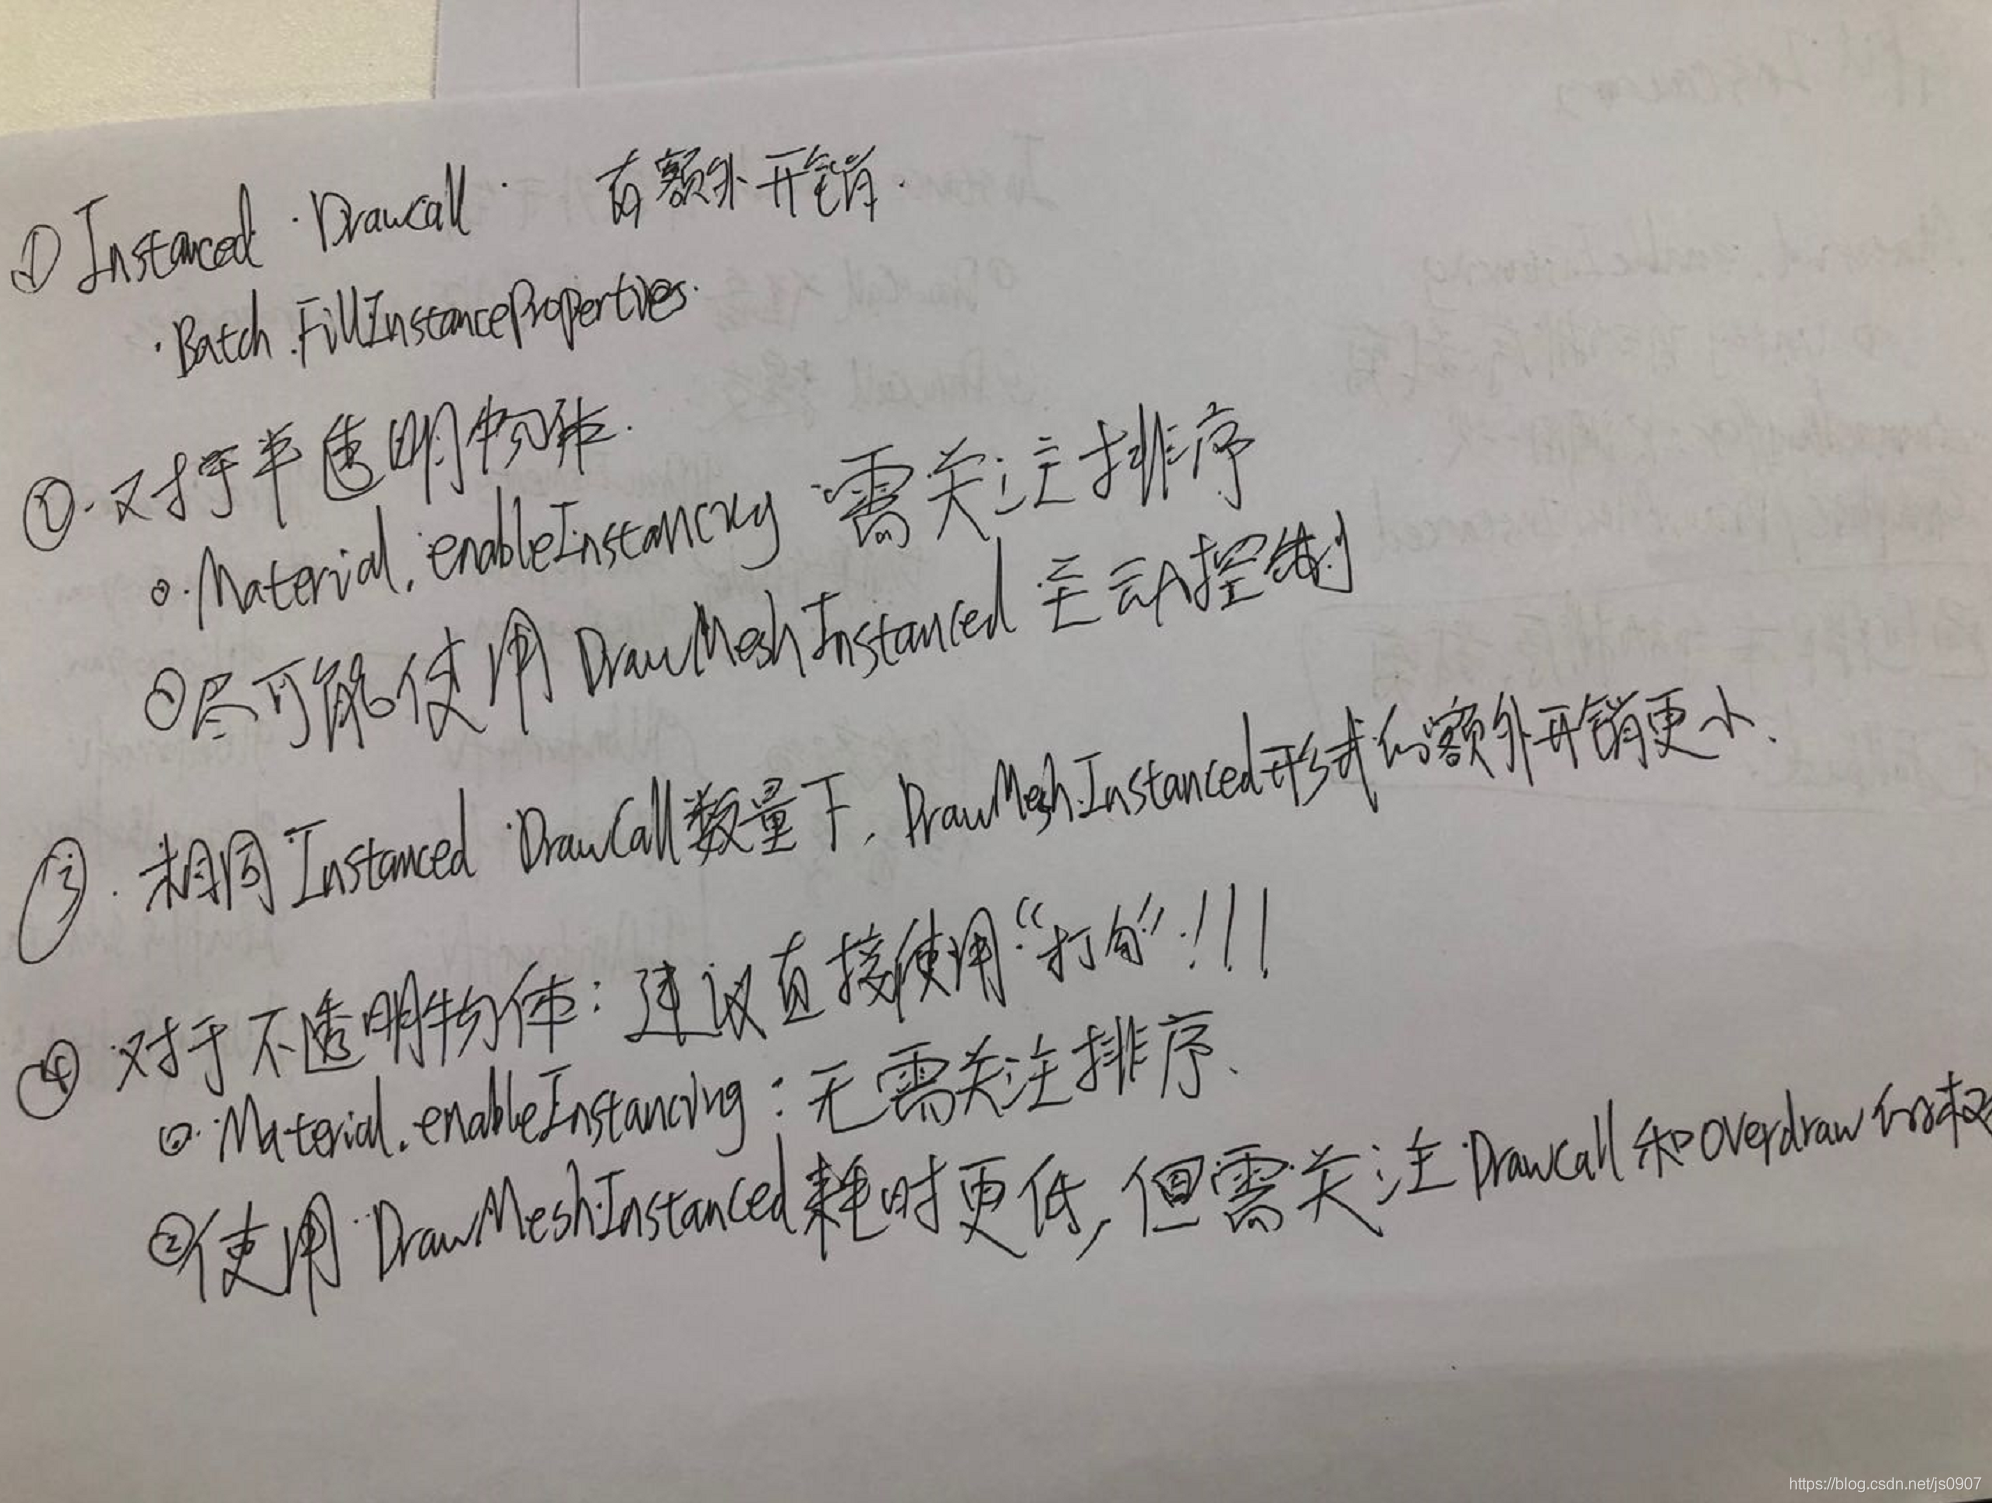 ① Instanced DrawCall 有额外开销.
· Batch.FillInstanceProperties.
②. 对于半透明物体.
①. Material.enableInstancing 需关注排序
② 尽可能使用 DrawMeshInstanced 主动控制
③. 相同 Instanced DrawCall 数量下, DrawMeshInstanced 形式的额外开销更小.
④ 对于不透明物体: 建议直接使用“打勾”!!!
①. Material.enableInstancing: 无需关注排序.
② 使用 DrawMeshInstanced 耗时更低, 但需关注 Drawcall 和 overdraw 的权
https://blog.csdn.net/js0907